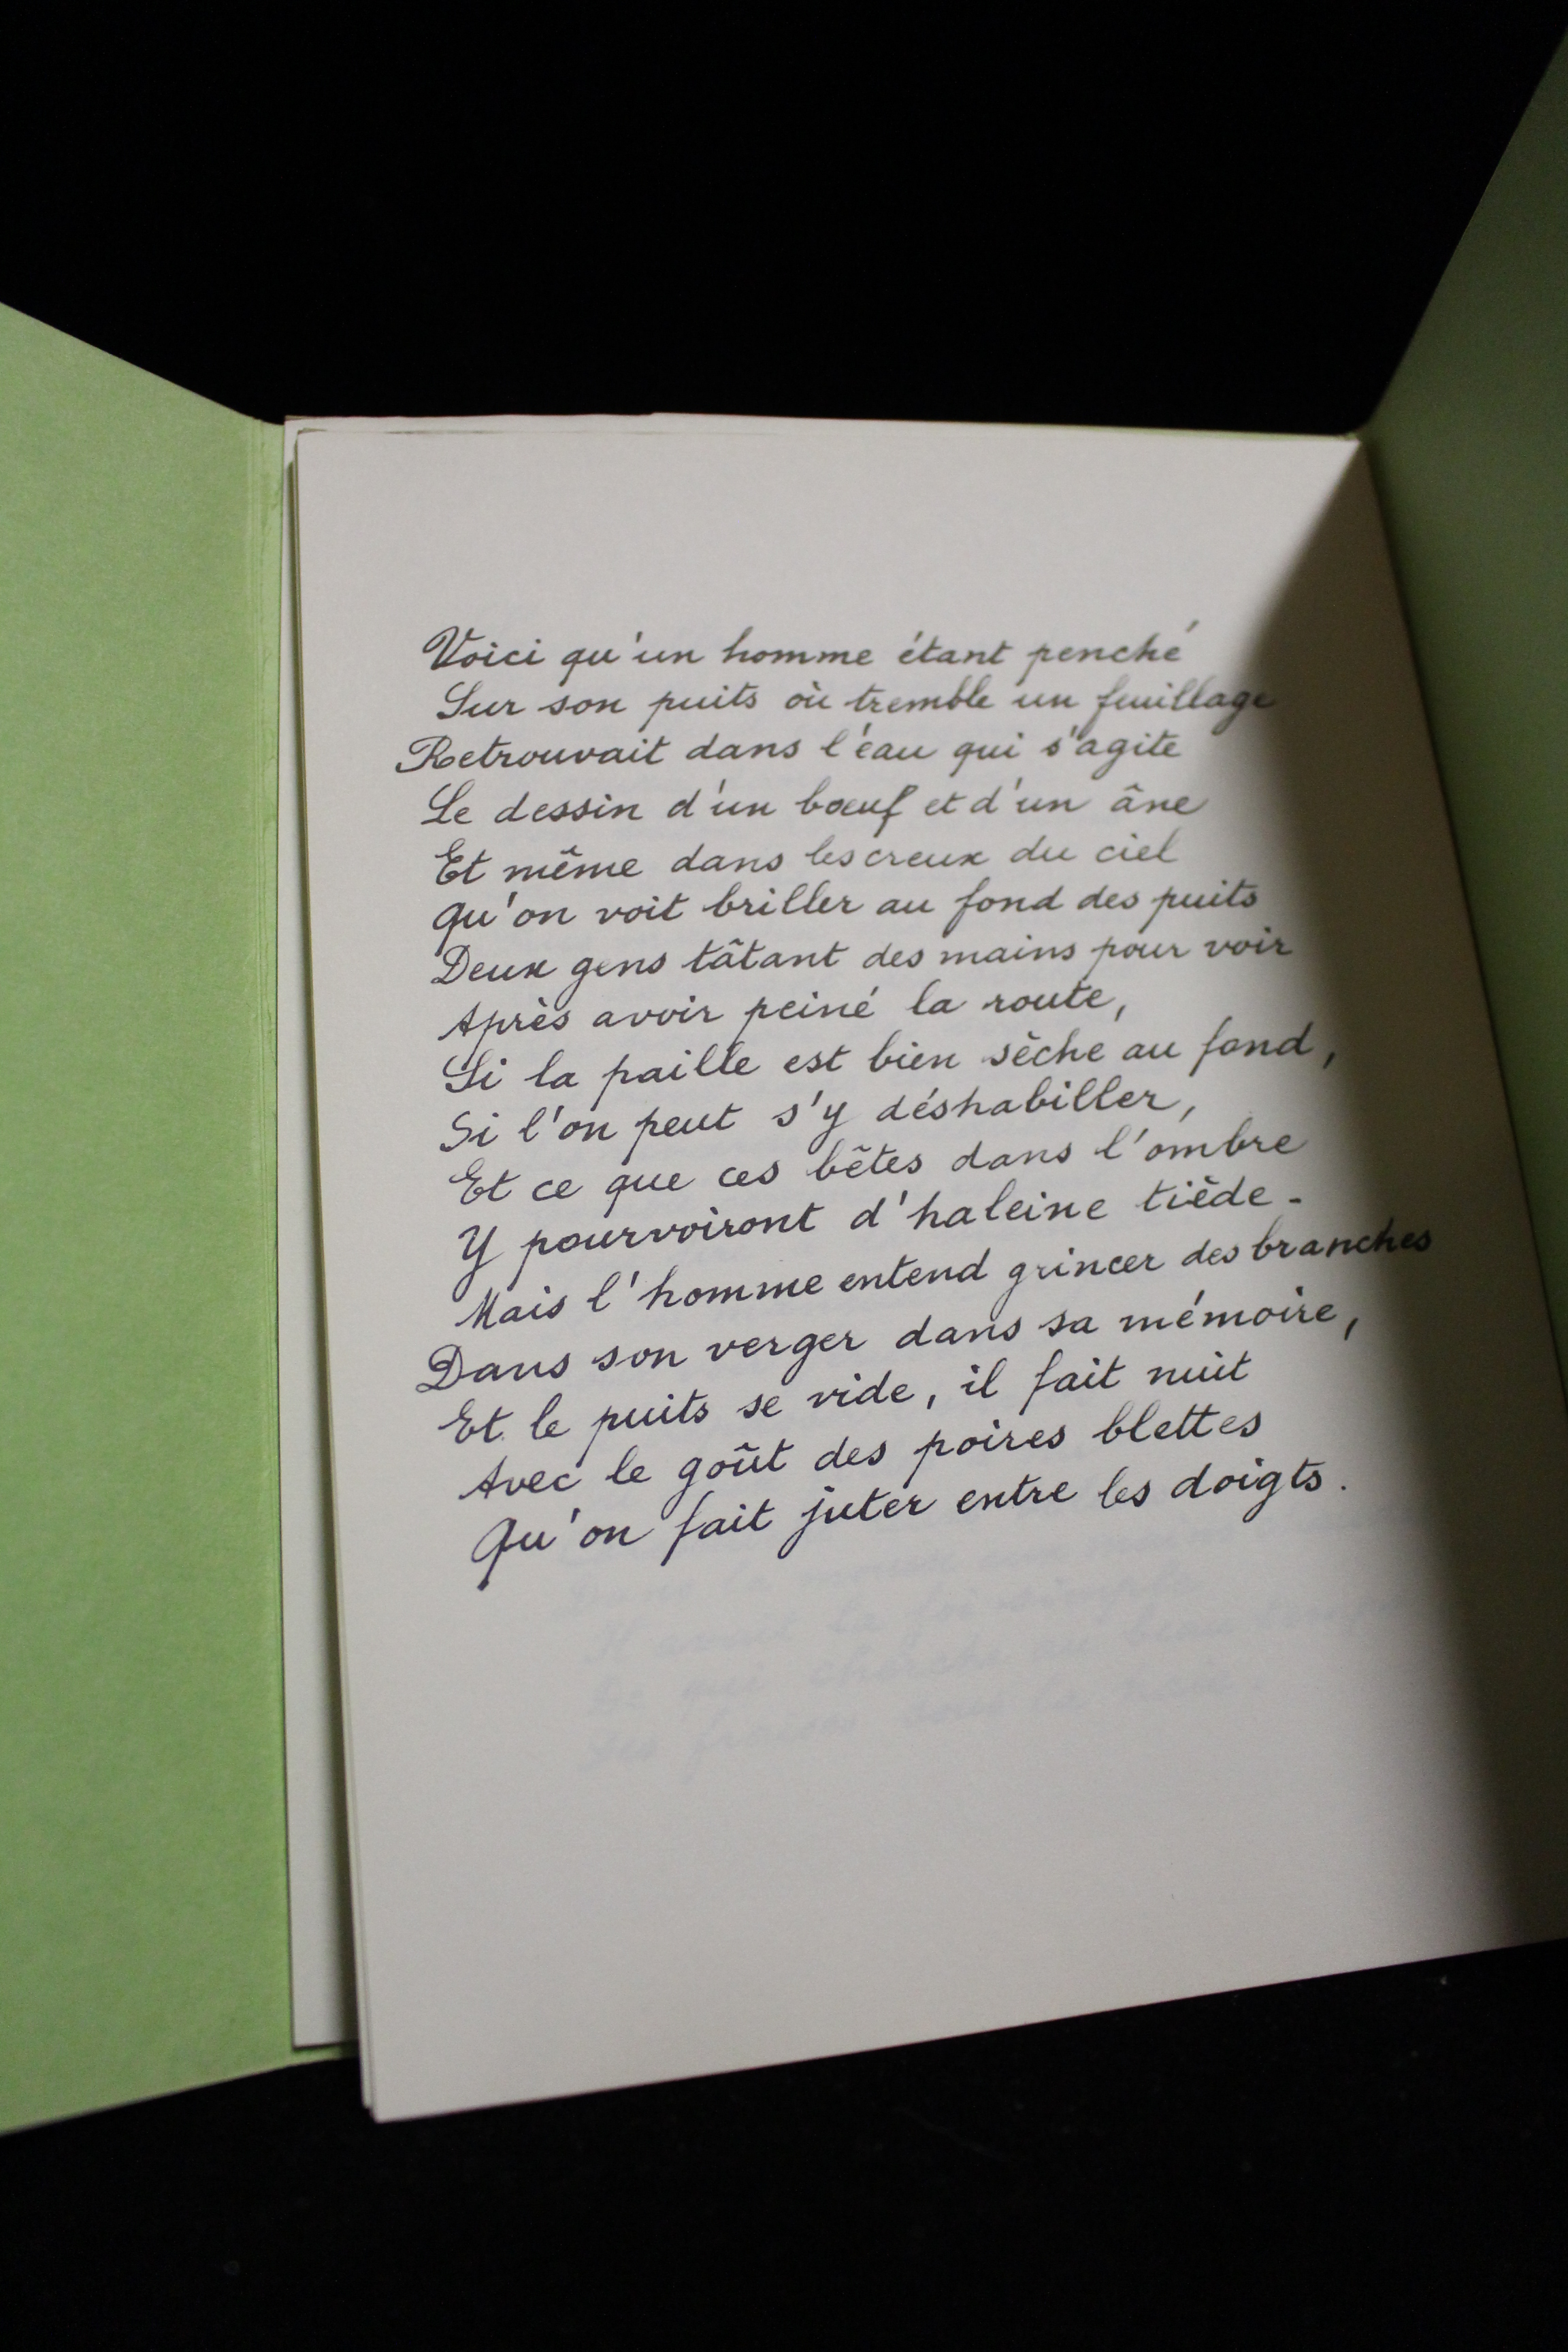 Voici qu'un homme étant penché
Sur son puits où tremble un feuillage
Retrouvait dans l'eau qui s'agite
Le dessin d'un bœuf et d'un âne
Et même dans les creux du ciel
Qu'on voit briller au fond des puits
Deux gens tâtant des mains pour voir
Après avoir peiné la route,
Si la paille est bien sèche au fond,
Si l'on peut s'y déshabiller,
Et ce que ces bêtes dans l'ombre
Y pourvoiront d'haleine tiède.
Mais l'homme entend grincer des branches
Dans son verger dans sa mémoire,
Et le puits se vide, il fait nuit
Avec le goût des poires blettes
Qu'on fait juter entre les doigts.